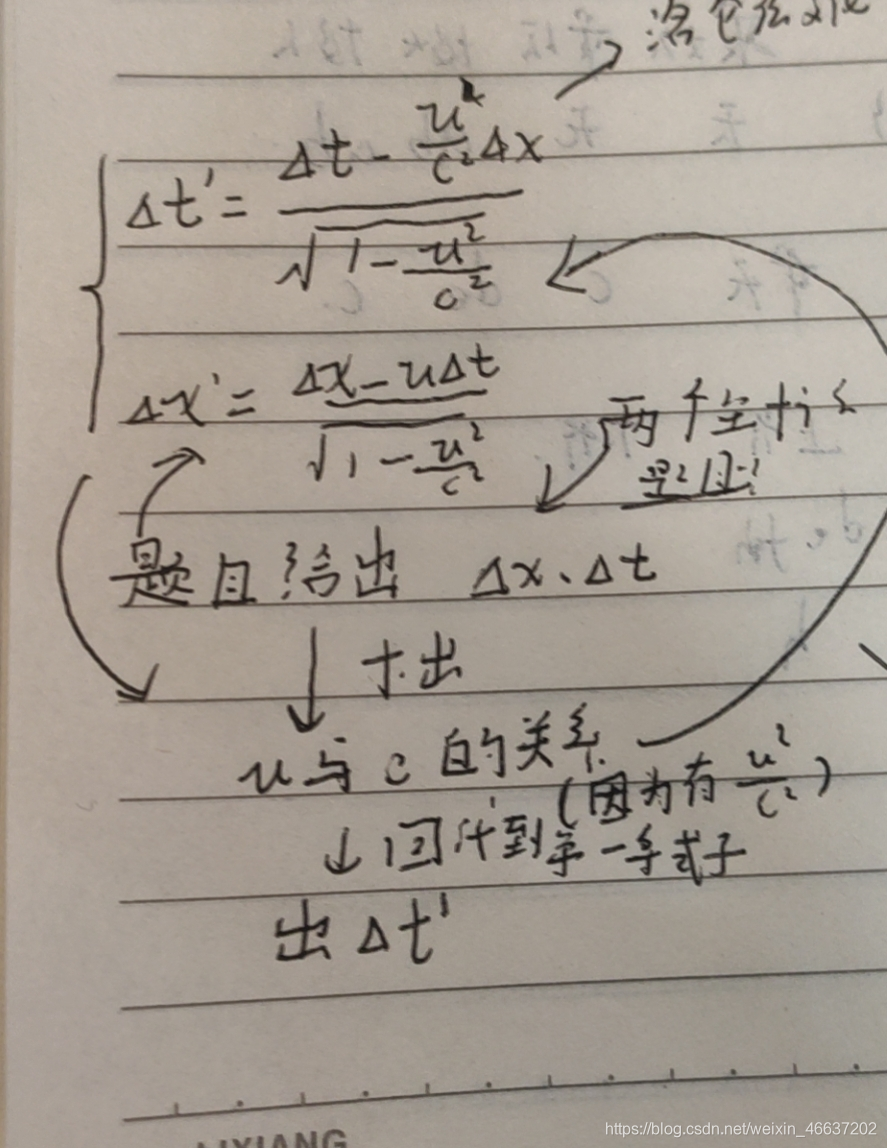 洛仑兹
Δt' = (Δt - u²/c² Δx) / √(1 - u²/c²)
Δx' = (Δx - uΔt) / √(1 - u²/c²)
两个
题目给出 Δx、Δt
↓ 求出
u与c的关系
(因为有 u²/c²)
↓ 回代到第一个式子
出 Δt'
https://blog.csdn.net/weixin_46637202